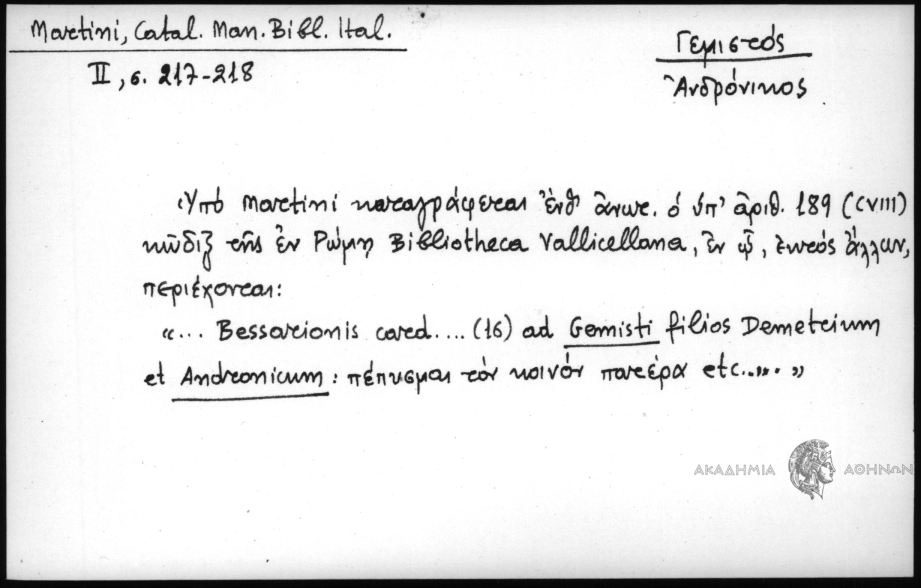 Martini, Catal. Man. Bibl. Ital.
II, σ. 217-218
Γεμιστός
Ἀνδρόνικος
Ὑπό Martini καταγράφεται ἔνθ' ἄνωτ. ὁ ὑπ' ἀριθ. 189 (CVIII)
κῶδιξ τῆς ἐν Ρώμῃ Bibliotheca Vallicellana, ἐν ᾧ, ἐκτός ἄλλων,
περιέχονται:
«... Bessarionis card.... (16) ad Gemisti filios Demetrium
et Andronicum: πέπυσμαι τόν κοινόν πατέρα etc.....»
ΑΚΑΔΗΜΙΑ ΑΘΗΝΩΝ